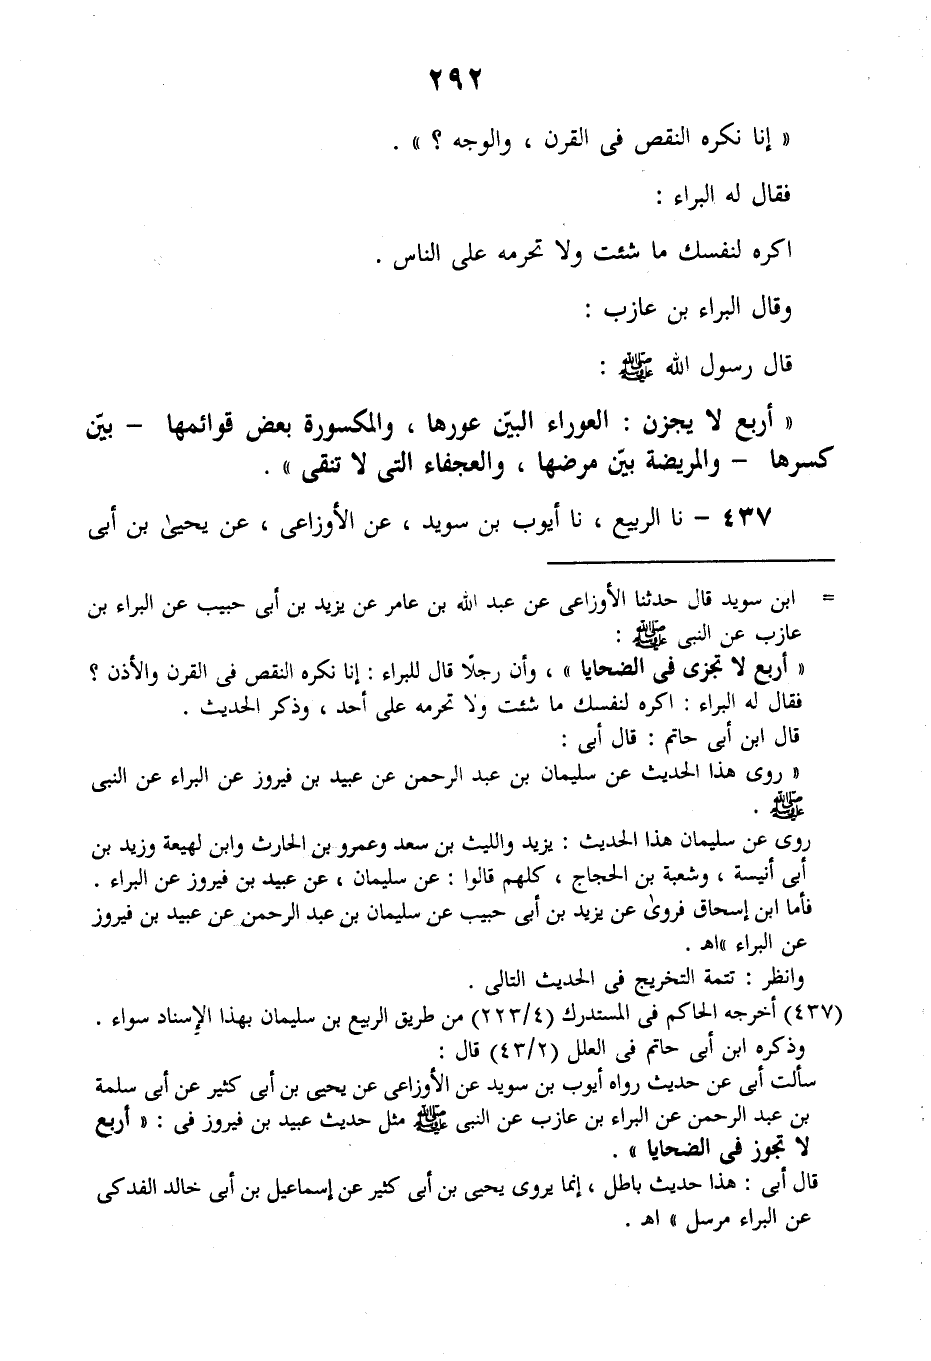 ٢٩٢
« إنا نكره النقص فى القرن ، والوجه ؟ » .
فقال له البراء :
اكره لنفسك ما شئت ولا تحرمه على الناس .
وقال البراء بن عازب :
قال رسول الله ﷺ :
« أربع لا يجزن : العوراء البيّن عورها ، والمكسورة بعض قوائمها – بيّن
كسرها – والمريضة بيّن مرضها ، والعجفاء التى لا تنقى » .
٤٣٧ – نا الربيع ، نا أيوب بن سويد ، عن الأوزاعى ، عن يحيىٰ بن أبى
= ابن سويد قال حدثنا الأوزاعى عن عبد الله بن عامر عن يزيد بن أبى حبيب عن البراء بن
عازب عن النبى ﷺ :
« أربع لا تجزى فى الضحايا » ، وأن رجلًا قال للبراء : إنا نكره النقص فى القرن والأذن ؟
فقال له البراء : اكره لنفسك ما شئت ولا تحرمه على أحد ، وذكر الحديث .
قال ابن أبى حاتم : قال أبى :
« روى هذا الحديث عن سليمان بن عبد الرحمن عن عبيد بن فيروز عن البراء عن النبى
ﷺ .
روى عن سليمان هذا الحديث : يزيد والليث بن سعد وعمرو بن الحارث وابن لهيعة وزيد بن
أبى أنيسة ، وشعبة بن الحجاج ، كلهم قالوا : عن سليمان ، عن عبيد بن فيروز عن البراء .
فأما ابن إسحاق فروىٰ عن يزيد بن أبى حبيب عن سليمان بن عبد الرحمن عن عبيد بن فيروز
عن البراء »اهـ .
وانظر : تتمة التخريج فى الحديث التالى .
(٤٣٧) أخرجه الحاكم فى المستدرك (٢٢٣/٤) من طريق الربيع بن سليمان بهذا الإسناد سواء .
وذكره ابن أبى حاتم فى العلل (٤٣/٢) قال :
سألت أبى عن حديث رواه أيوب بن سويد عن الأوزاعى عن يحيى بن أبى كثير عن أبى سلمة
بن عبد الرحمن عن البراء بن عازب عن النبى ﷺ مثل حديث عبيد بن فيروز فى : « أربع
لا تجوز فى الضحايا » .
قال أبى : هذا حديث باطل ، إنما يروى يحيى بن أبى كثير عن إسماعيل بن أبى خالد الفدكى
عن البراء مرسل » اهـ .